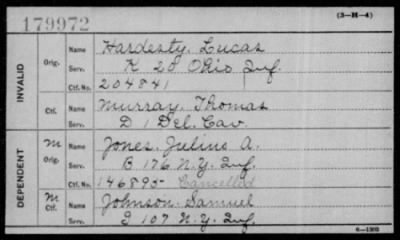 179972
(3-H-4)
INVALID
Orig. Name Hardesty, Lucas
Serv. K 20 Ohio Inf.
Ctf. No. 204841
Ctf. Name Murray, Thomas
Serv. D 1 Del. Cav.
DEPENDENT
M Orig. Name Jones, Julius A.
Serv. B 176 N.Y. Inf.
Ctf. No. 146895 Cancelled
M Ctf. Name Johnson Samuel
Serv. I 107 N.Y. Inf.
6-1302